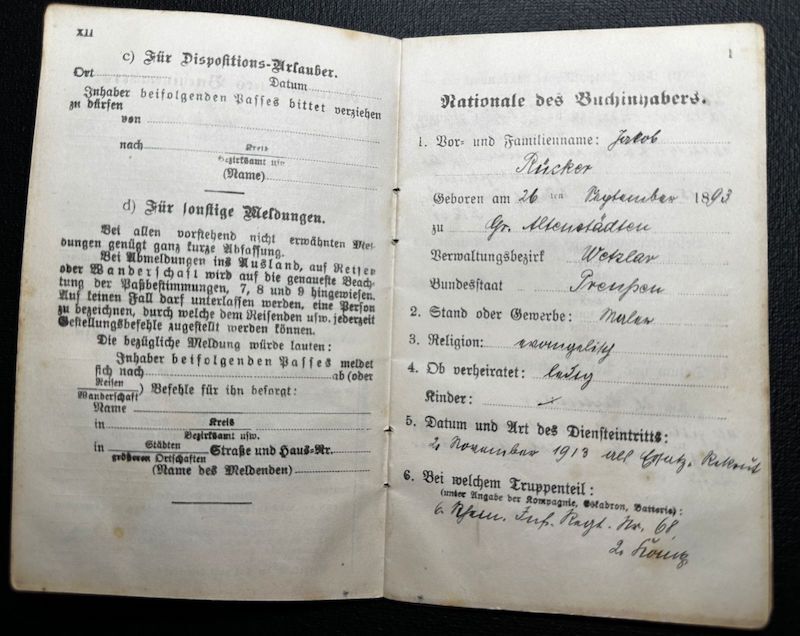 XII
c) Für Dispositions-Urlauber.
Ort Datum
Inhaber beifolgenden Passes bittet verziehen
zu dürfen
von
nach Kreis
Bezirksamt usw
(Name)
d) Für sonstige Meldungen.
Bei allen vorstehend nicht erwähnten Mel-
dungen genügt ganz kurze Abfassung.
Bei Abmeldungen ins Ausland, auf Reisen
oder Wanderschaft wird auf die genaueste Beach-
tung der Paßbestimmungen, 7, 8 und 9 hingewiesen.
Auf keinen Fall darf unterlassen werden, eine Person
zu bezeichnen, durch welche dem Reisenden usw. jederzeit
Gestellungsbefehle zugestellt werden können.
Die bezügliche Meldung würde lauten:
Inhaber beifolgenden Passes meldet
sich nach ab (oder
Reisen
Wanderschaft) Befehle für ihn besorgt:
Name
in Kreis
Bezirksamt usw.
in Städten Straße und Haus-Nr.
größeren Ortschaften
(Name des Meldenden)
1
Nationale des Buchinhabers.
1. Vor- und Familienname: Jakob
Rücker
Geboren am 26 ten September 1893
zu Gr. Altenstädten
Verwaltungsbezirk Wetzlar
Bundesstaat Preußen
2. Stand oder Gewerbe: Maler
3. Religion: evangelisch
4. Ob verheiratet: ledig
Kinder:
5. Datum und Art des Diensteintritts:
2. November 1913 als Ersatz. Rekrut
6. Bei welchem Truppenteil:
(unter Angabe der Kompagnie, Eskadron, Batterie):
6. Rhein. Inf. Regt. Nr. 68
2.